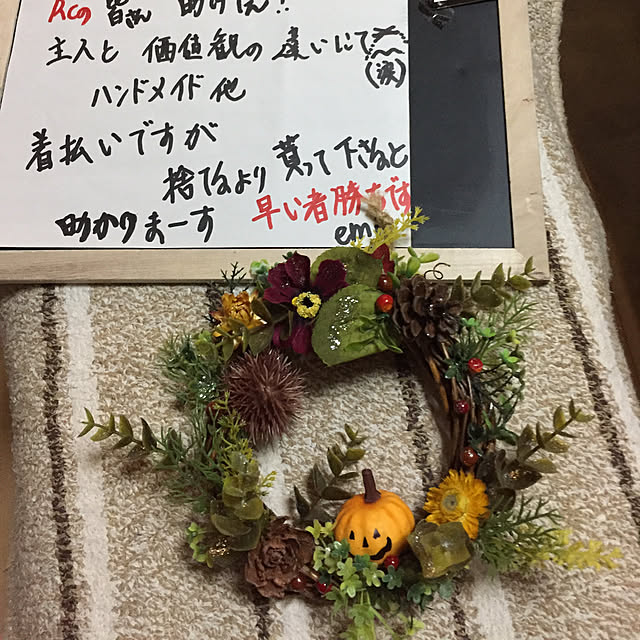 RCの 皆さん 助けて!
主人と 価値観の違いにて
(涙)
ハンドメイド他
着払いですが
捨てるより 貰って下さると
助かりまーす 早い者勝ちです
em